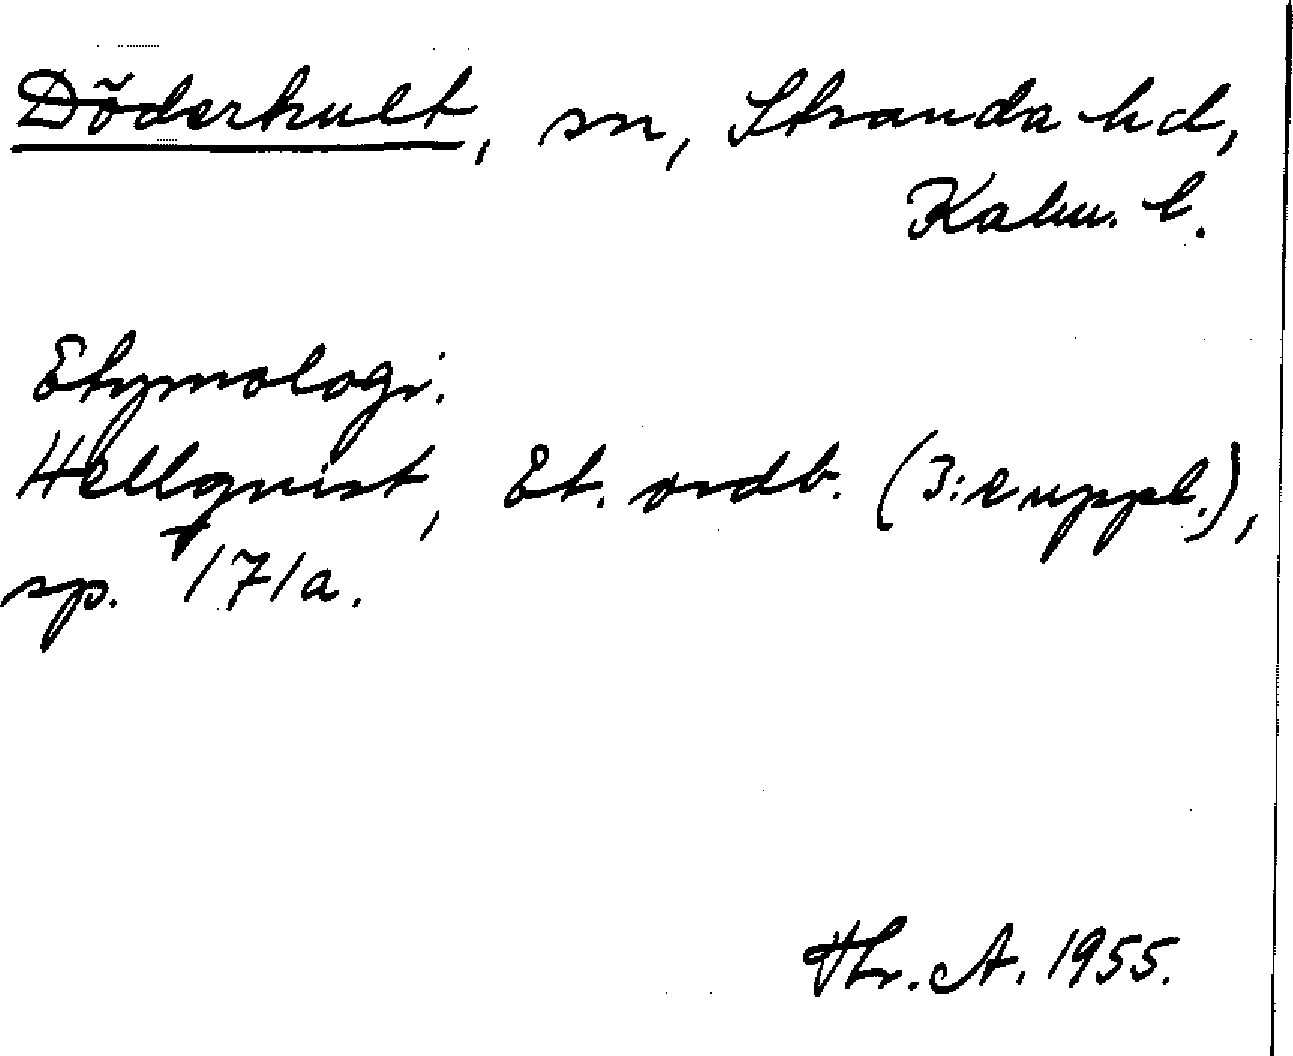 Döderhult, sn, Stranda hd,
Kalm. l.
Etymologi.
Hellquist, Et. ordb. (3:e uppl.),
sp. 171a.
Thr. A. 1955.